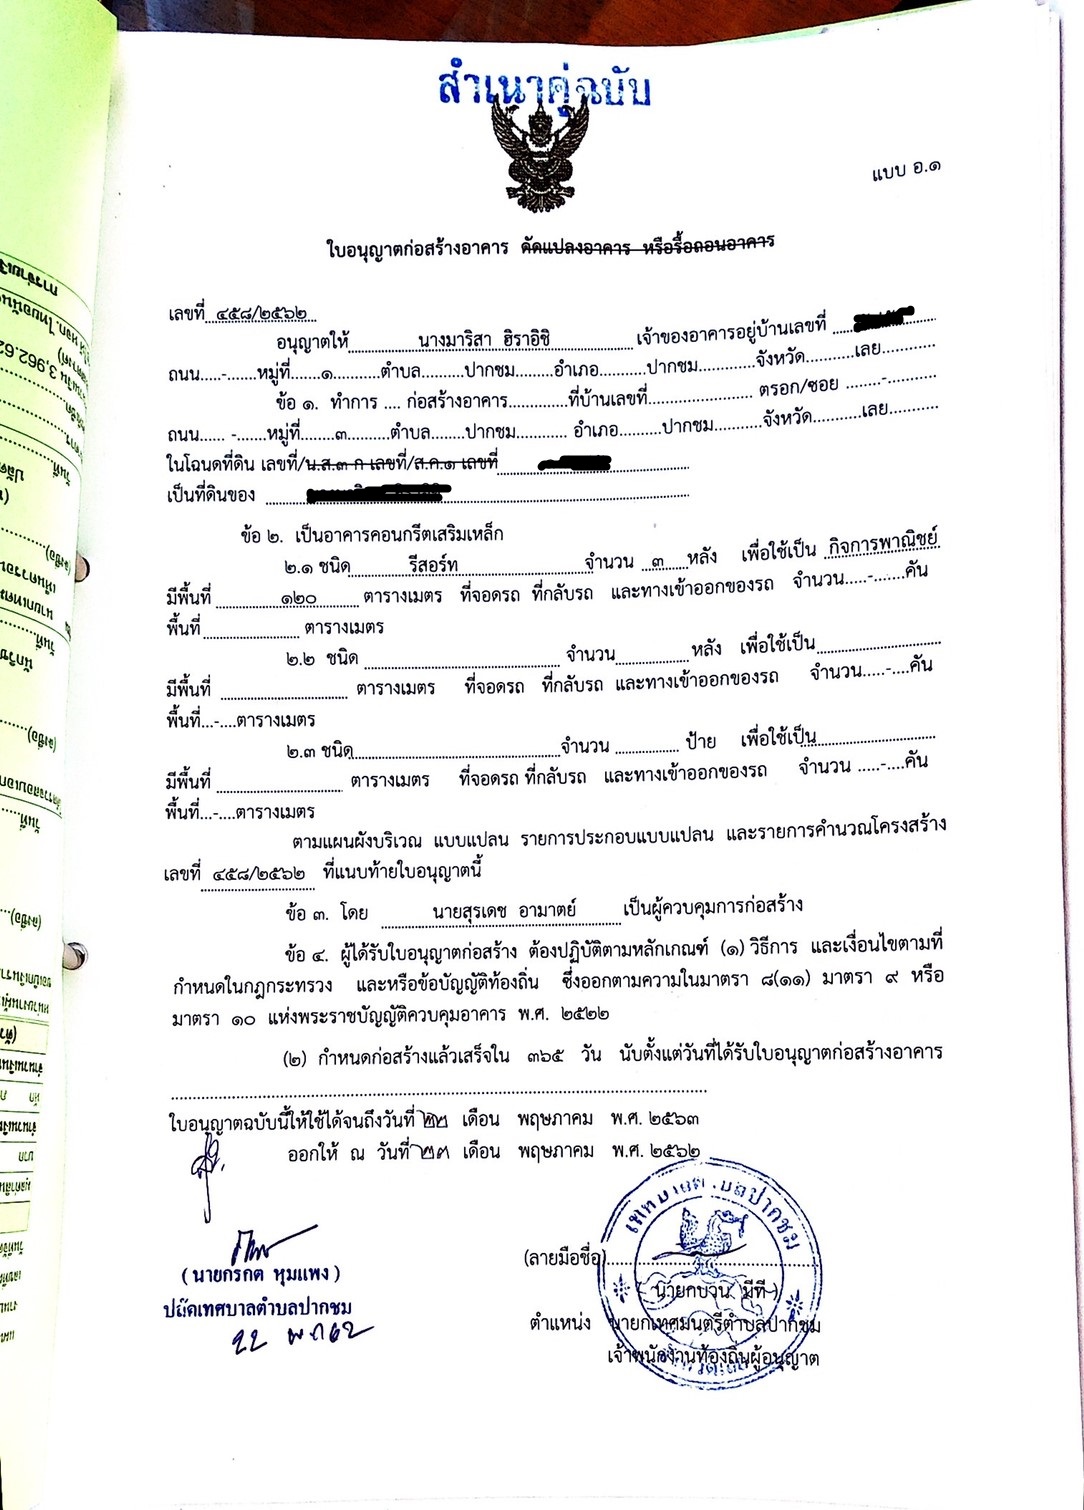 สำเนาคู่ฉบับ
แบบ อ.๑
ใบอนุญาตก่อสร้างอาคาร ดัดแปลงอาคาร หรือรื้อถอนอาคาร
เลขที่ ๔๕๘/๒๕๖๒
อนุญาตให้ นางมาริสา ฮิราอิชิ เจ้าของอาคารอยู่บ้านเลขที่
ถนน.....-.......หมู่ที่......๑..........ตำบล.........ปากชม........อำเภอ..........ปากชม............จังหวัด..........เลย..........
ข้อ ๑. ทำการ .... ก่อสร้างอาคาร.............ที่บ้านเลขที่....................... ตรอก/ซอย ........-..........
ถนน...... -.......หมู่ที่........๓..........ตำบล........ปากชม........... อำเภอ.........ปากชม............จังหวัด..........เลย..........
ในโฉนดที่ดิน เลขที่/น.ส.๓ ก เลขที่/ส.ค.๑ เลขที่
เป็นที่ดินของ
ข้อ ๒. เป็นอาคารคอนกรีตเสริมเหล็ก
๒.๑ ชนิด รีสอร์ท จำนวน ๓ หลัง เพื่อใช้เป็น กิจการพาณิชย์
มีพื้นที่ ๑๒๐ ตารางเมตร ที่จอดรถ ที่กลับรถ และทางเข้าออกของรถ จำนวน.....-.......คัน
พื้นที่ ตารางเมตร
๒.๒ ชนิด จำนวน หลัง เพื่อใช้เป็น
มีพื้นที่ ตารางเมตร ที่จอดรถ ที่กลับรถ และทางเข้าออกของรถ จำนวน.....-....คัน
พื้นที่...-....ตารางเมตร
๒.๓ ชนิด จำนวน ป้าย เพื่อใช้เป็น
มีพื้นที่ ตารางเมตร ที่จอดรถ ที่กลับรถ และทางเข้าออกของรถ จำนวน .....-....คัน
พื้นที่...-....ตารางเมตร
ตามแผนผังบริเวณ แบบแปลน รายการประกอบแบบแปลน และรายการคำนวณโครงสร้าง
เลขที่ ๔๕๘/๒๕๖๒ ที่แนบท้ายใบอนุญาตนี้
ข้อ ๓. โดย นายสุรเดช อามาตย์ เป็นผู้ควบคุมการก่อสร้าง
ข้อ ๔. ผู้ได้รับใบอนุญาตก่อสร้าง ต้องปฏิบัติตามหลักเกณฑ์ (๑) วิธีการ และเงื่อนไขตามที่
กำหนดในกฎกระทรวง และหรือข้อบัญญัติท้องถิ่น ซึ่งออกตามความในมาตรา ๘(๑๑) มาตรา ๙ หรือ
มาตรา ๑๐ แห่งพระราชบัญญัติควบคุมอาคาร พ.ศ. ๒๕๒๒
(๒) กำหนดก่อสร้างแล้วเสร็จใน ๓๖๕ วัน นับตั้งแต่วันที่ได้รับใบอนุญาตก่อสร้างอาคาร
ใบอนุญาตฉบับนี้ให้ใช้ได้จนถึงวันที่ ๒๒ เดือน พฤษภาคม พ.ศ. ๒๕๖๓
ออกให้ ณ วันที่ ๒๓ เดือน พฤษภาคม พ.ศ. ๒๕๖๒
เทศบาลตำบลปากชม
(ลายมือชื่อ)
(นายกรกต หุมแพง)
( นายกบวน มีที )
ปลัดเทศบาลตำบลปากชม
ตำแหน่ง นายกเทศมนตรีตำบลปากชม
22 พ.ค 62
เจ้าพนักงานท้องถิ่นผู้อนุญาต